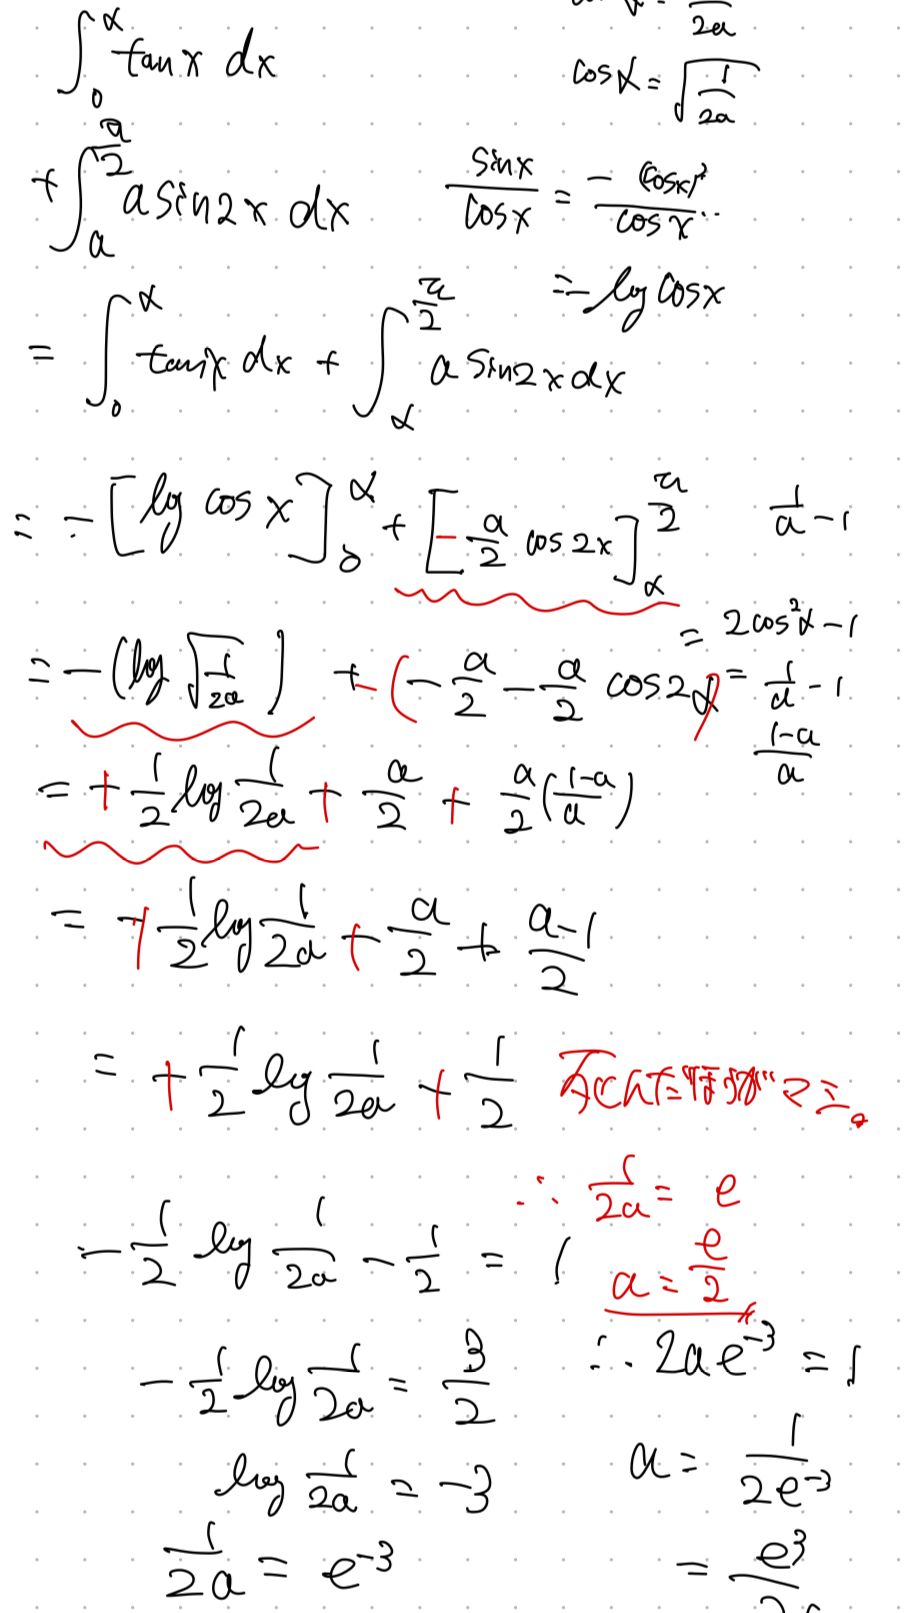 ∫_0^α tan x dx
cos α = √(1/2a)
+ ∫_a^{π/2} a sin2x dx
sin x / cos x = - (cos x)' / cos x
= - log cos x
= ∫_0^α tan x dx + ∫_α^{π/2} a sin2x dx
= - [log cos x]_0^α + [- a/2 cos 2x]_α^{π/2}
1/a - 1
= 2cos²α - 1
= - (log √(1/2a)) + - (- a/2 - a/2 cos2α)
= 1/a - 1
(1-a)/a
= + 1/2 log 1/2a + a/2 + a/2 ((1-a)/a)
= + 1/2 log 1/2a + a/2 + (a-1)/2
= + 1/2 log 1/2a + 1/2
∴ 1/2a = e
a = e/2
- 1/2 log 1/2a - 1/2 = 1
- 1/2 log 1/2a = 3/2
log 1/2a = -3
1/2a = e^{-3}
∴ 2ae^{-3} = 1
a = 1/2e^{-3}
= e³